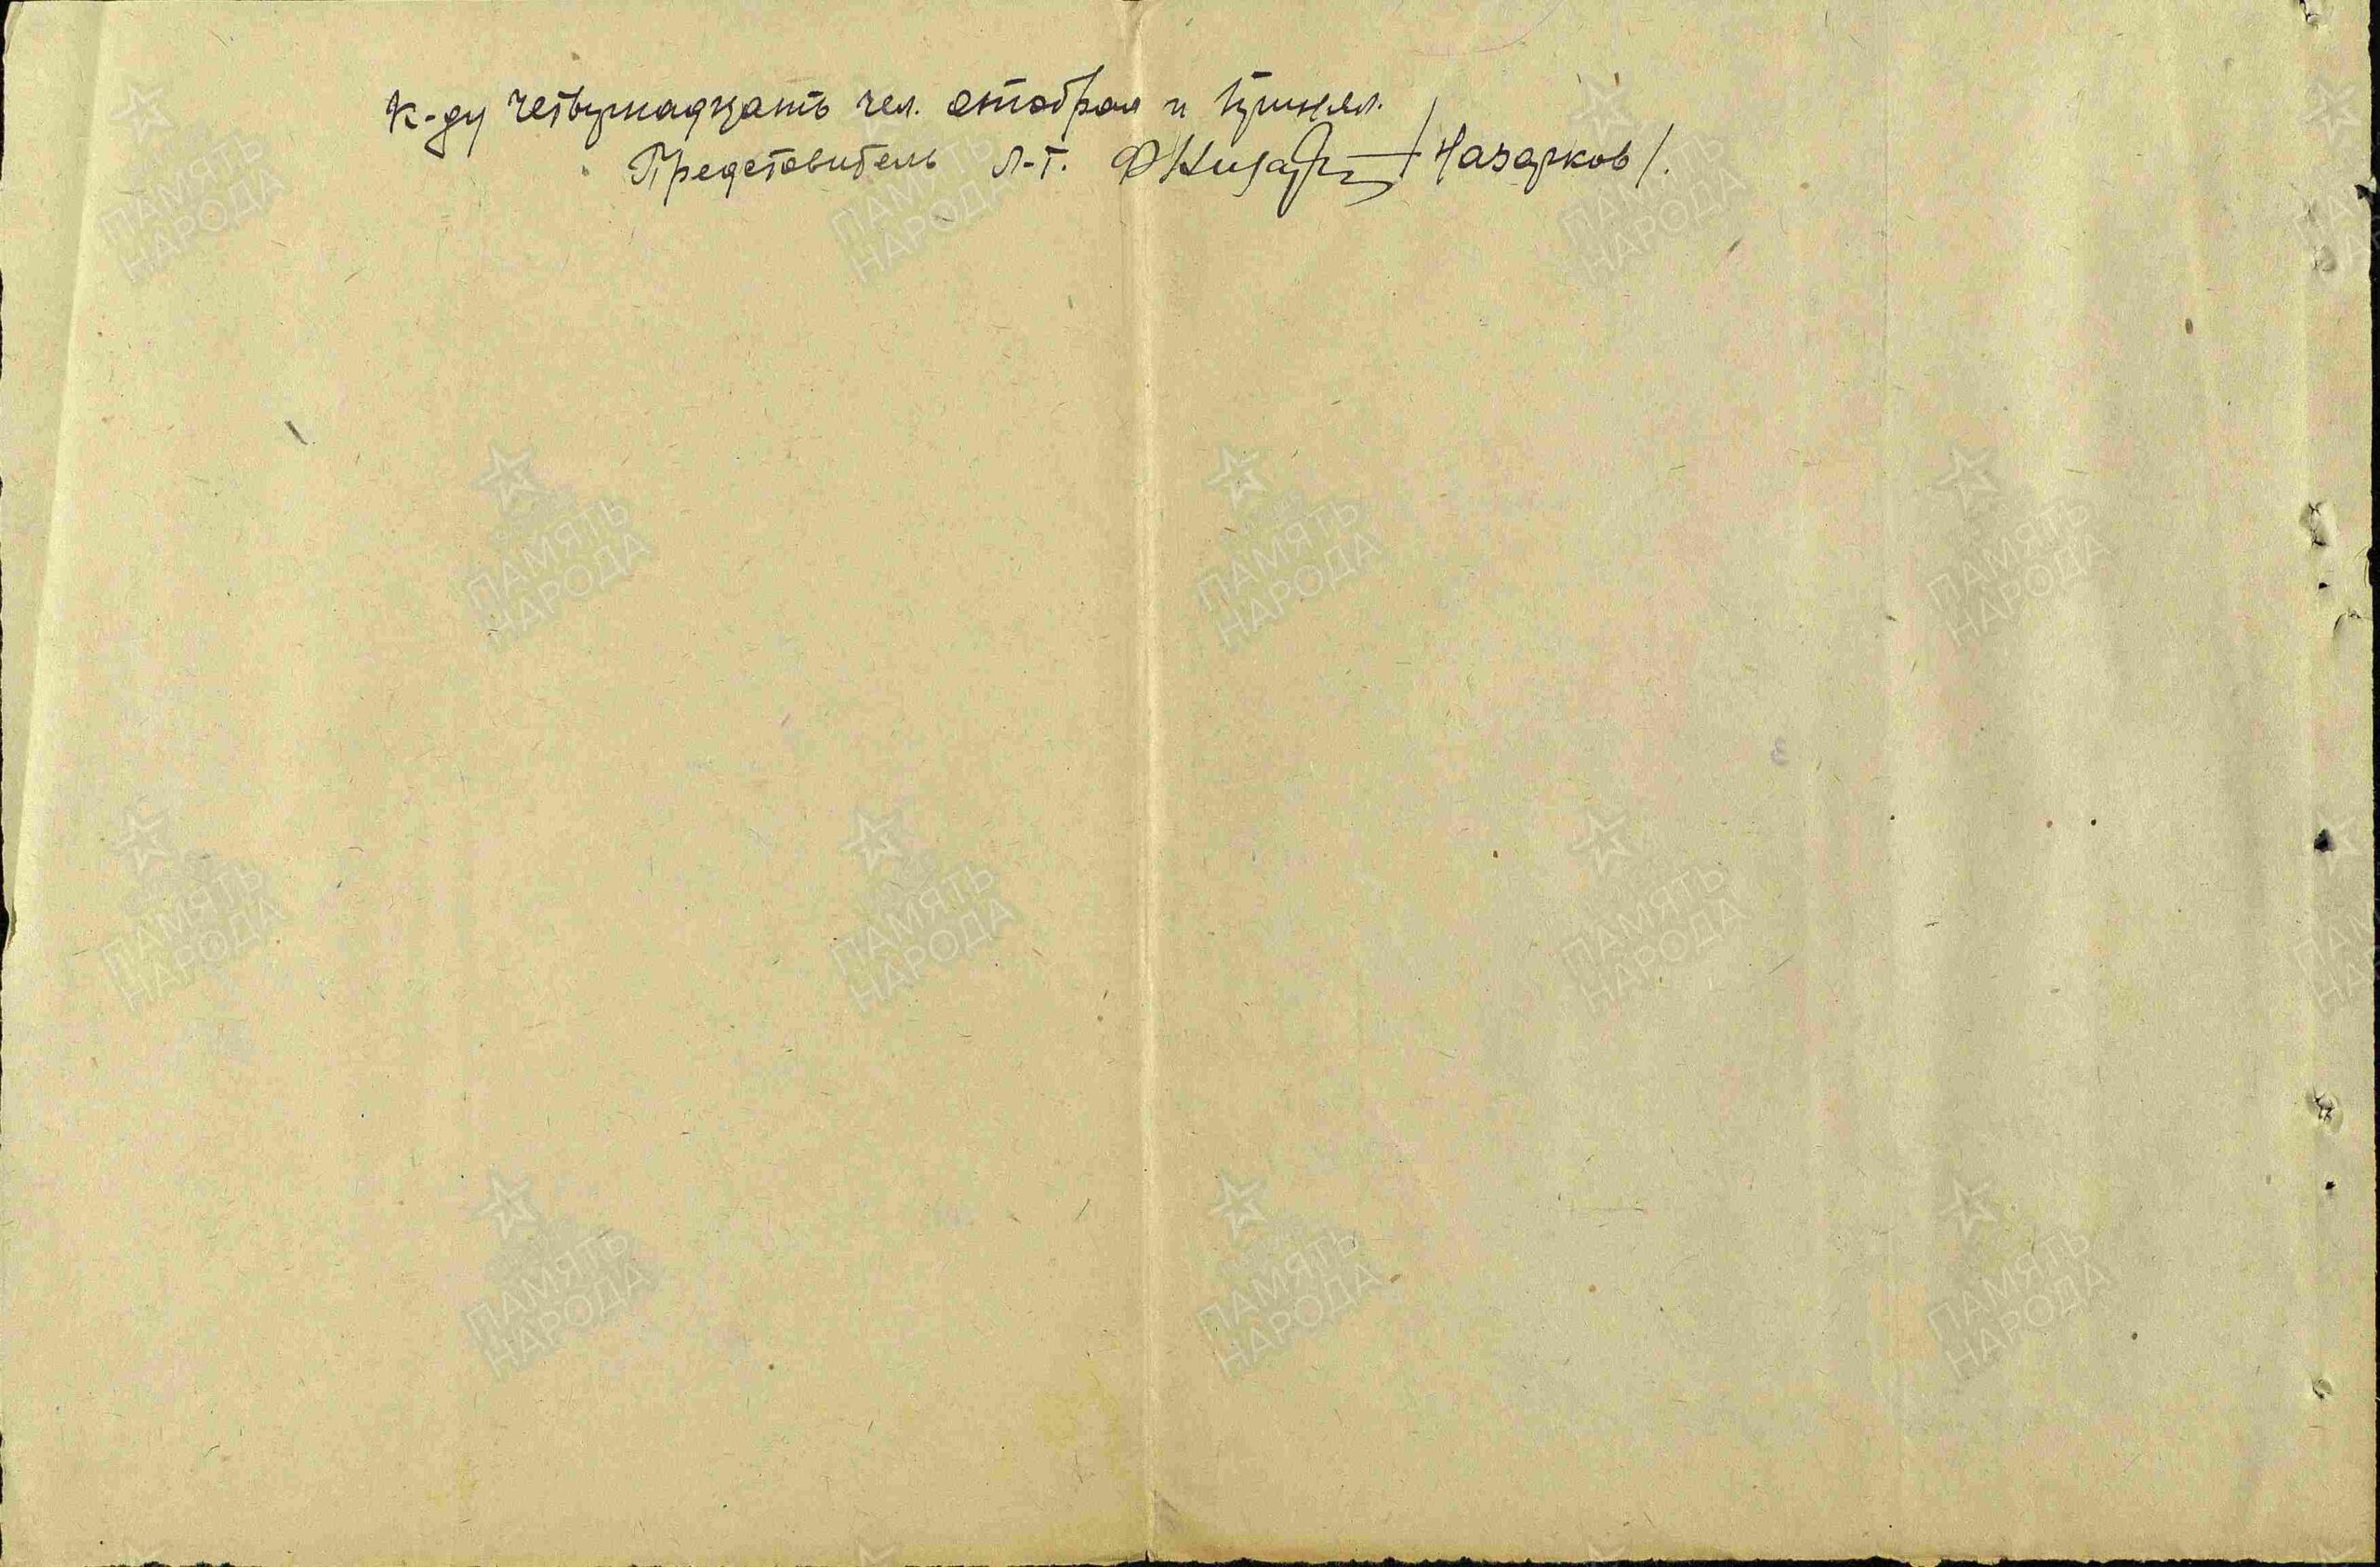 К-ду четырнадцать чел. отобрал и принял.
Представитель л-т. /Назарков/.
ПАМЯТЬ НАРОДА
ПАМЯТЬ НАРОДА
ПАМЯТЬ НАРОДА
ПАМЯТЬ НАРОДА
ПАМЯТЬ НАРОДА
ПАМЯТЬ НАРОДА
ПАМЯТЬ НАРОДА
ПАМЯТЬ НАРОДА
ПАМЯТЬ НАРОДА
ПАМЯТЬ НАРОДА
ПАМЯТЬ НАРОДА
ПАМЯТЬ НАРОДА